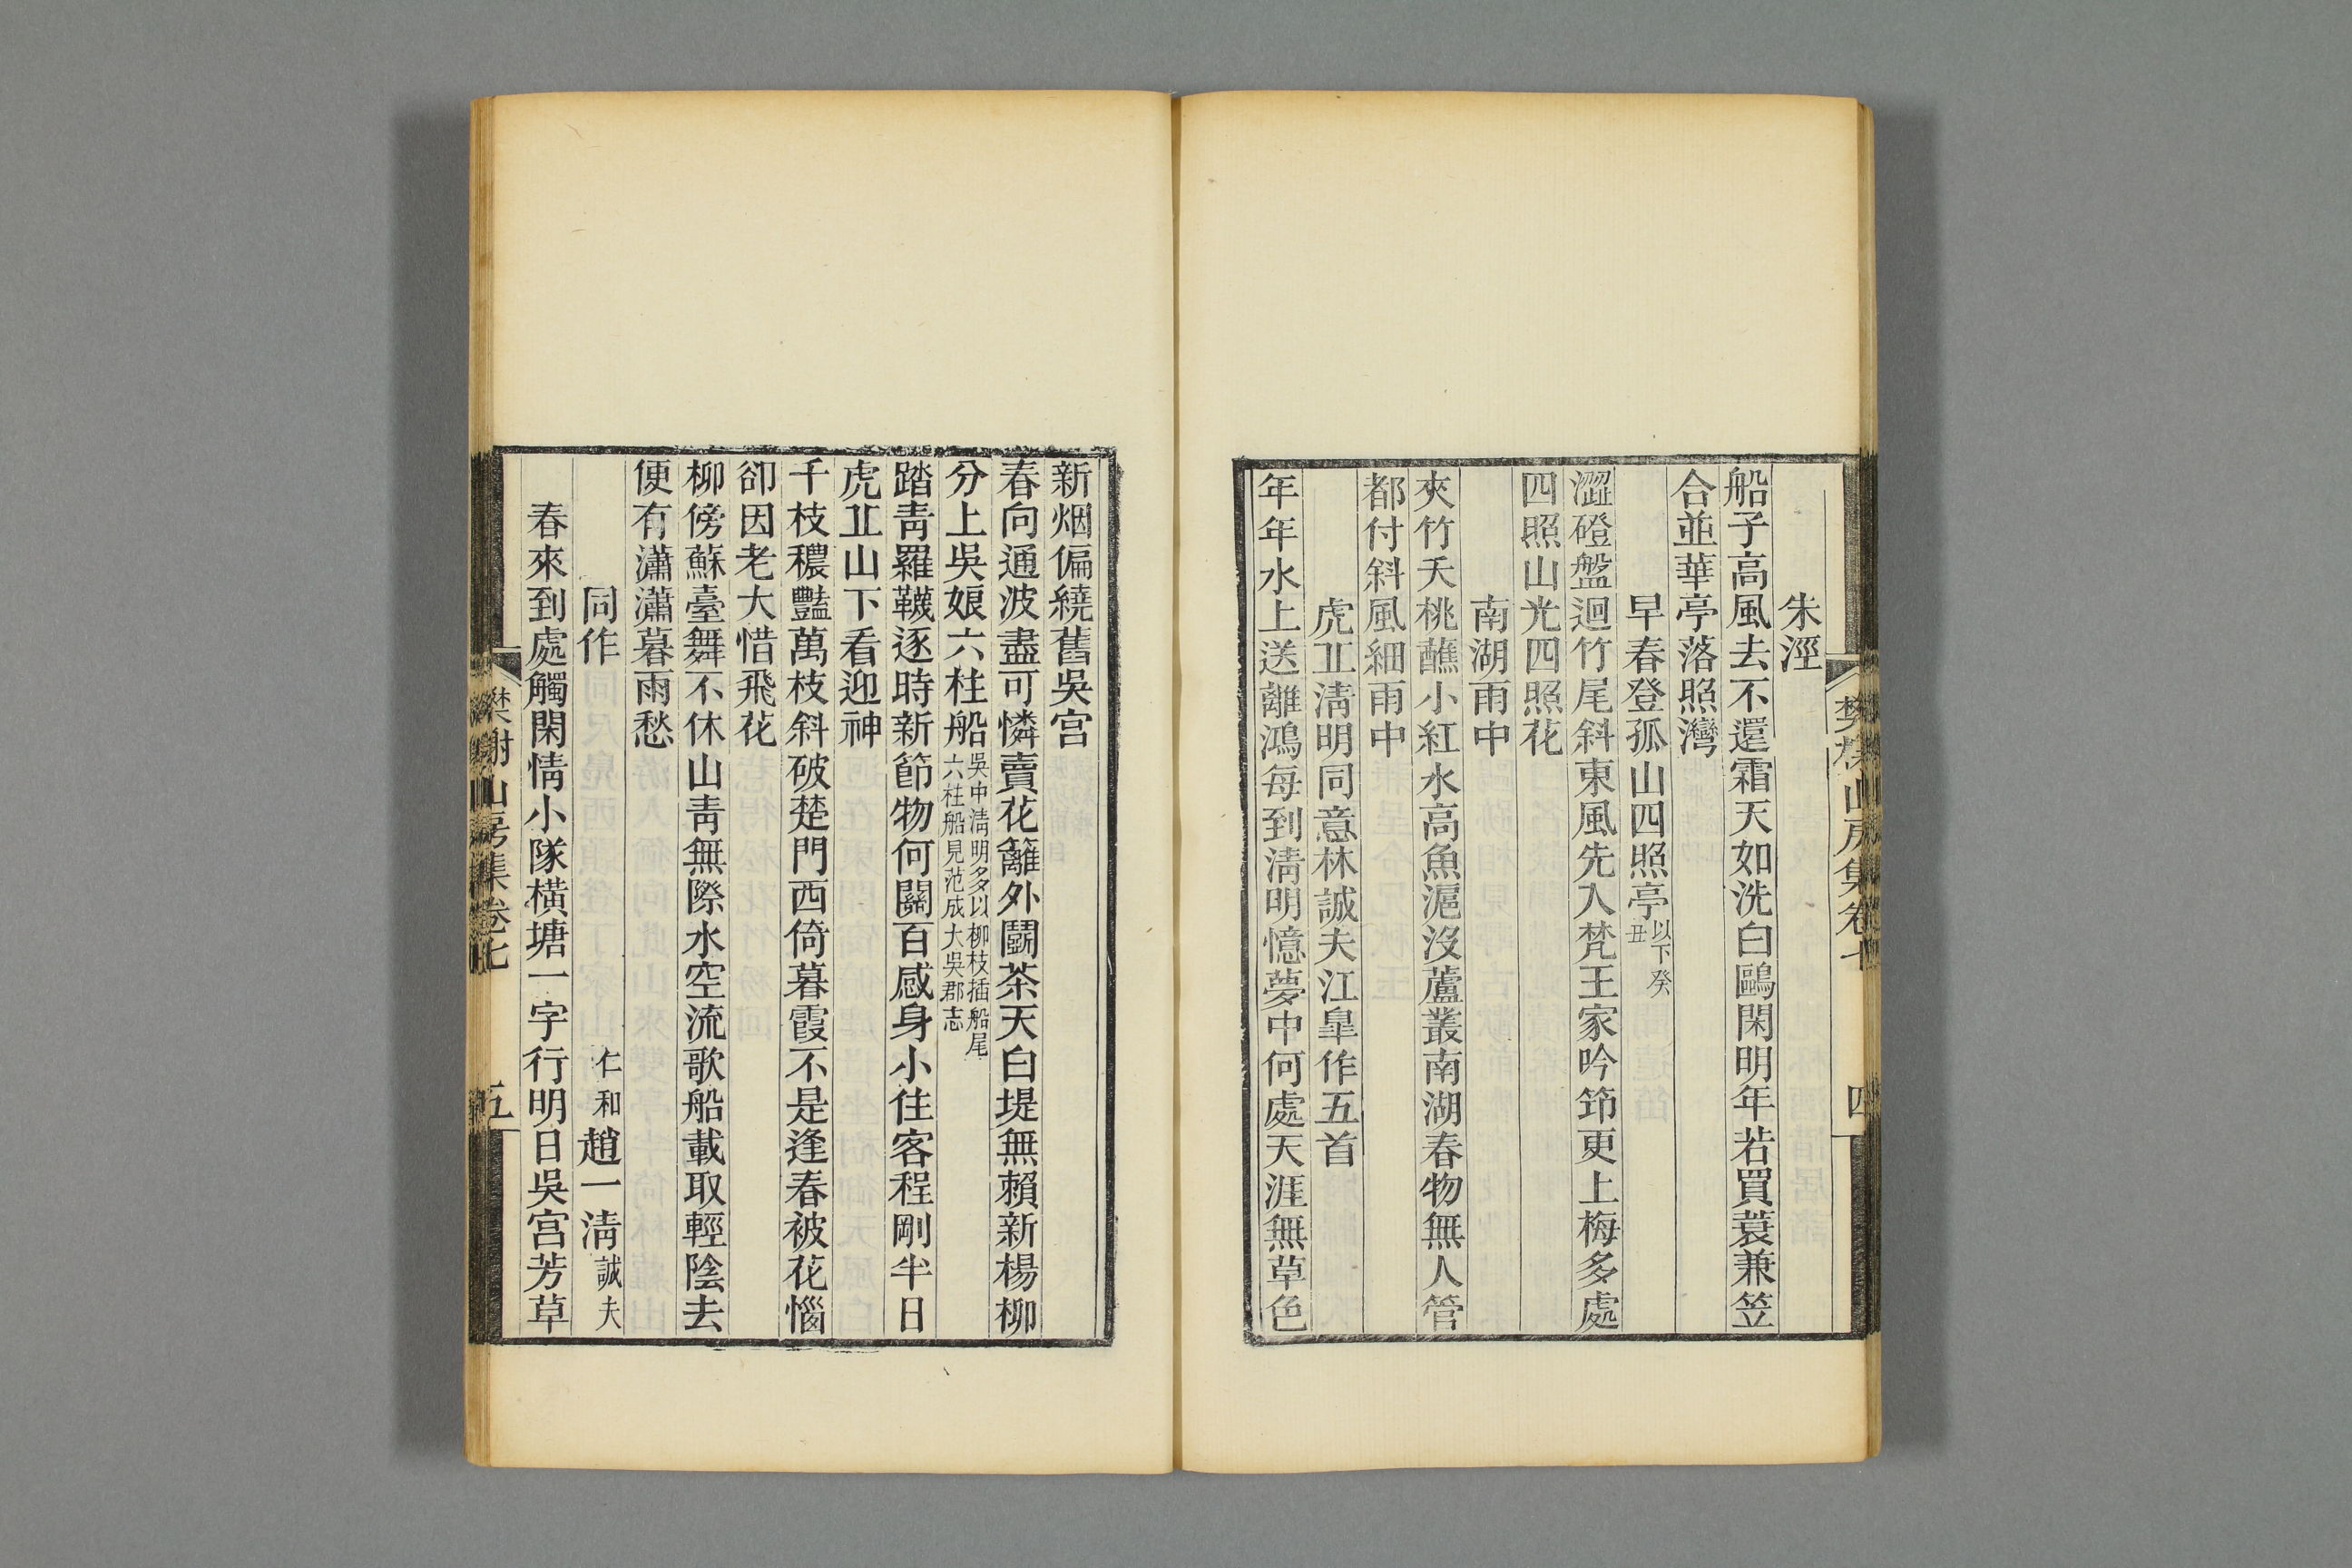 朱涇
船子高風去不還霜天如洗白鷗閑明年若買蓑兼笠
合並華亭落照灣
早春登孤山四照亭以下癸丑
澀磴盤迴竹尾斜東風先入梵王家吟笻更上梅多處
四照山光四照花
南湖雨中
夾竹夭桃蘸小紅水高魚滬沒蘆叢南湖春物無人管
都付斜風細雨中
虎丠淸明同意林誠夫江臯作五首
年年水上送離鴻每到淸明憶夢中何處天涯無草色
樊榭山房集卷七
四
新烟偏繞舊吳宮
春向通波盡可憐賣花籬外鬭茶天白堤無賴新楊柳
分上吳娘六柱船吳中淸明多以柳枝插船尾六柱船見范成大吳郡志
踏靑羅韈逐時新節物何關百感身小住客程剛半日
虎丠山下看迎神
千枝穠豔萬枝斜破楚門西倚暮霞不是逢春被花惱
卻因老大惜飛花
柳傍蘇臺舞不休山靑無際水空流歌船載取輕陰去
便有瀟瀟暮雨愁
同作 仁和趙一淸誠夫
春來到處觸閑情小隊橫塘一字行明日吳宮芳草
樊榭山房集卷七
五